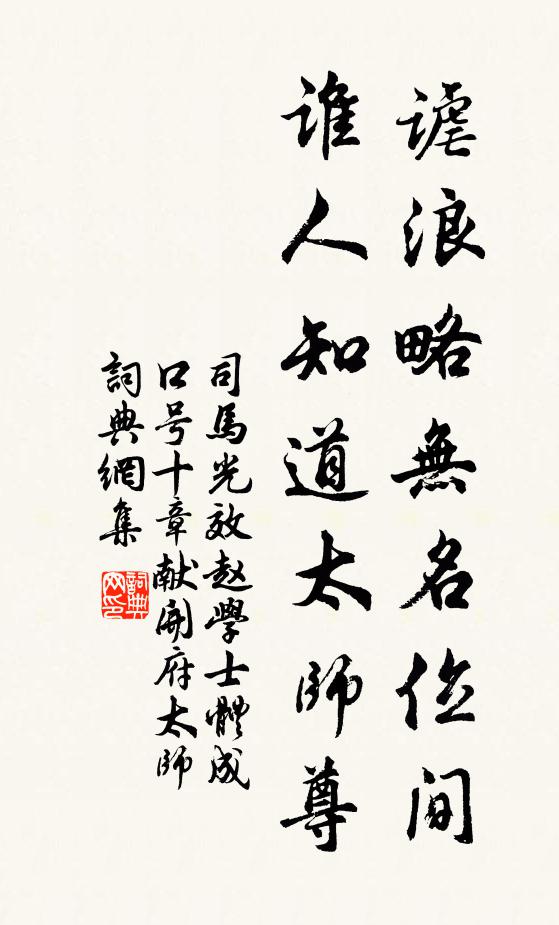 謔浪略無名位間
誰人知道太師尊
司馬光效赵學士體成
口号十章献開府太師
詞典網集
詞典网印